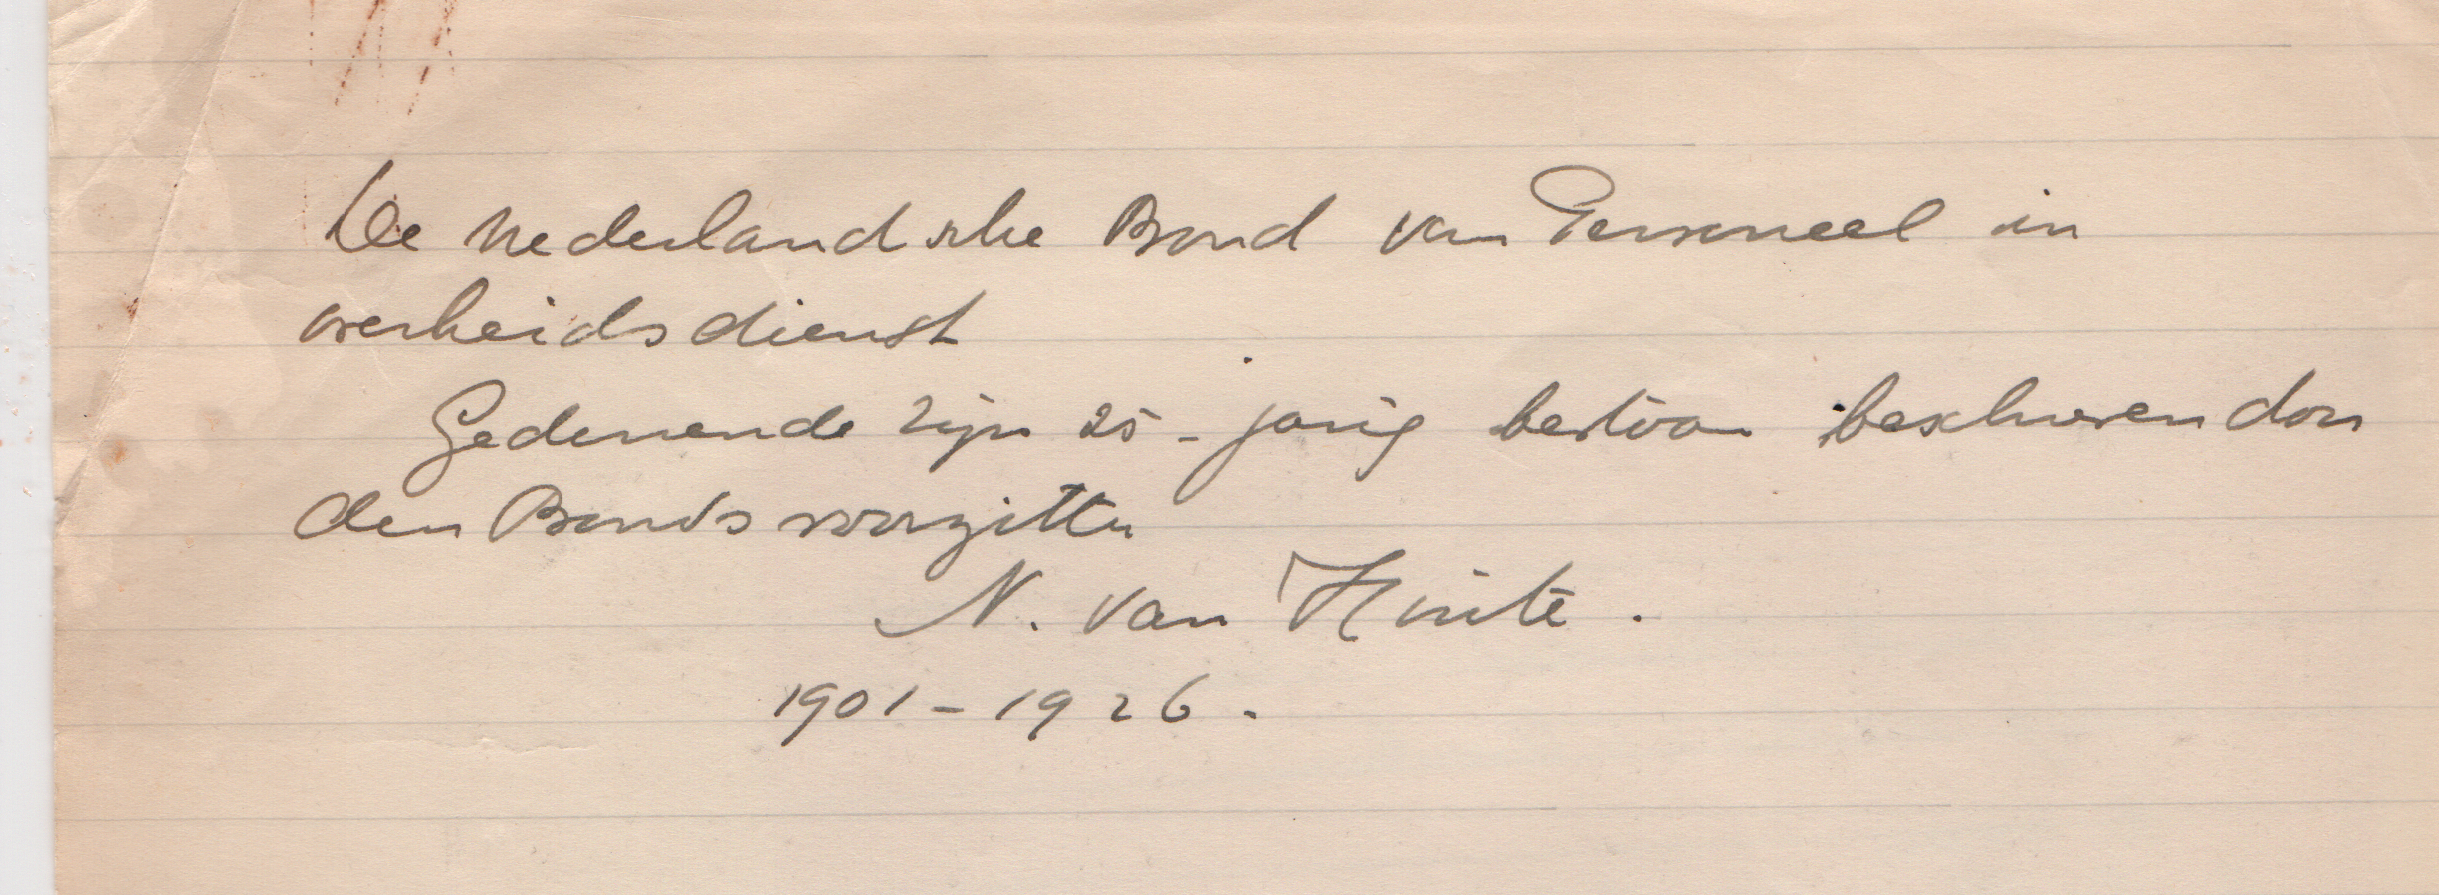 De Nederlandsche Bond van Personeel in
overheidsdienst
Gedurende zijn 25-jarig bestaan beschreven door
den Bondsvoorzitter
N. van Hinte.
1901-1926.